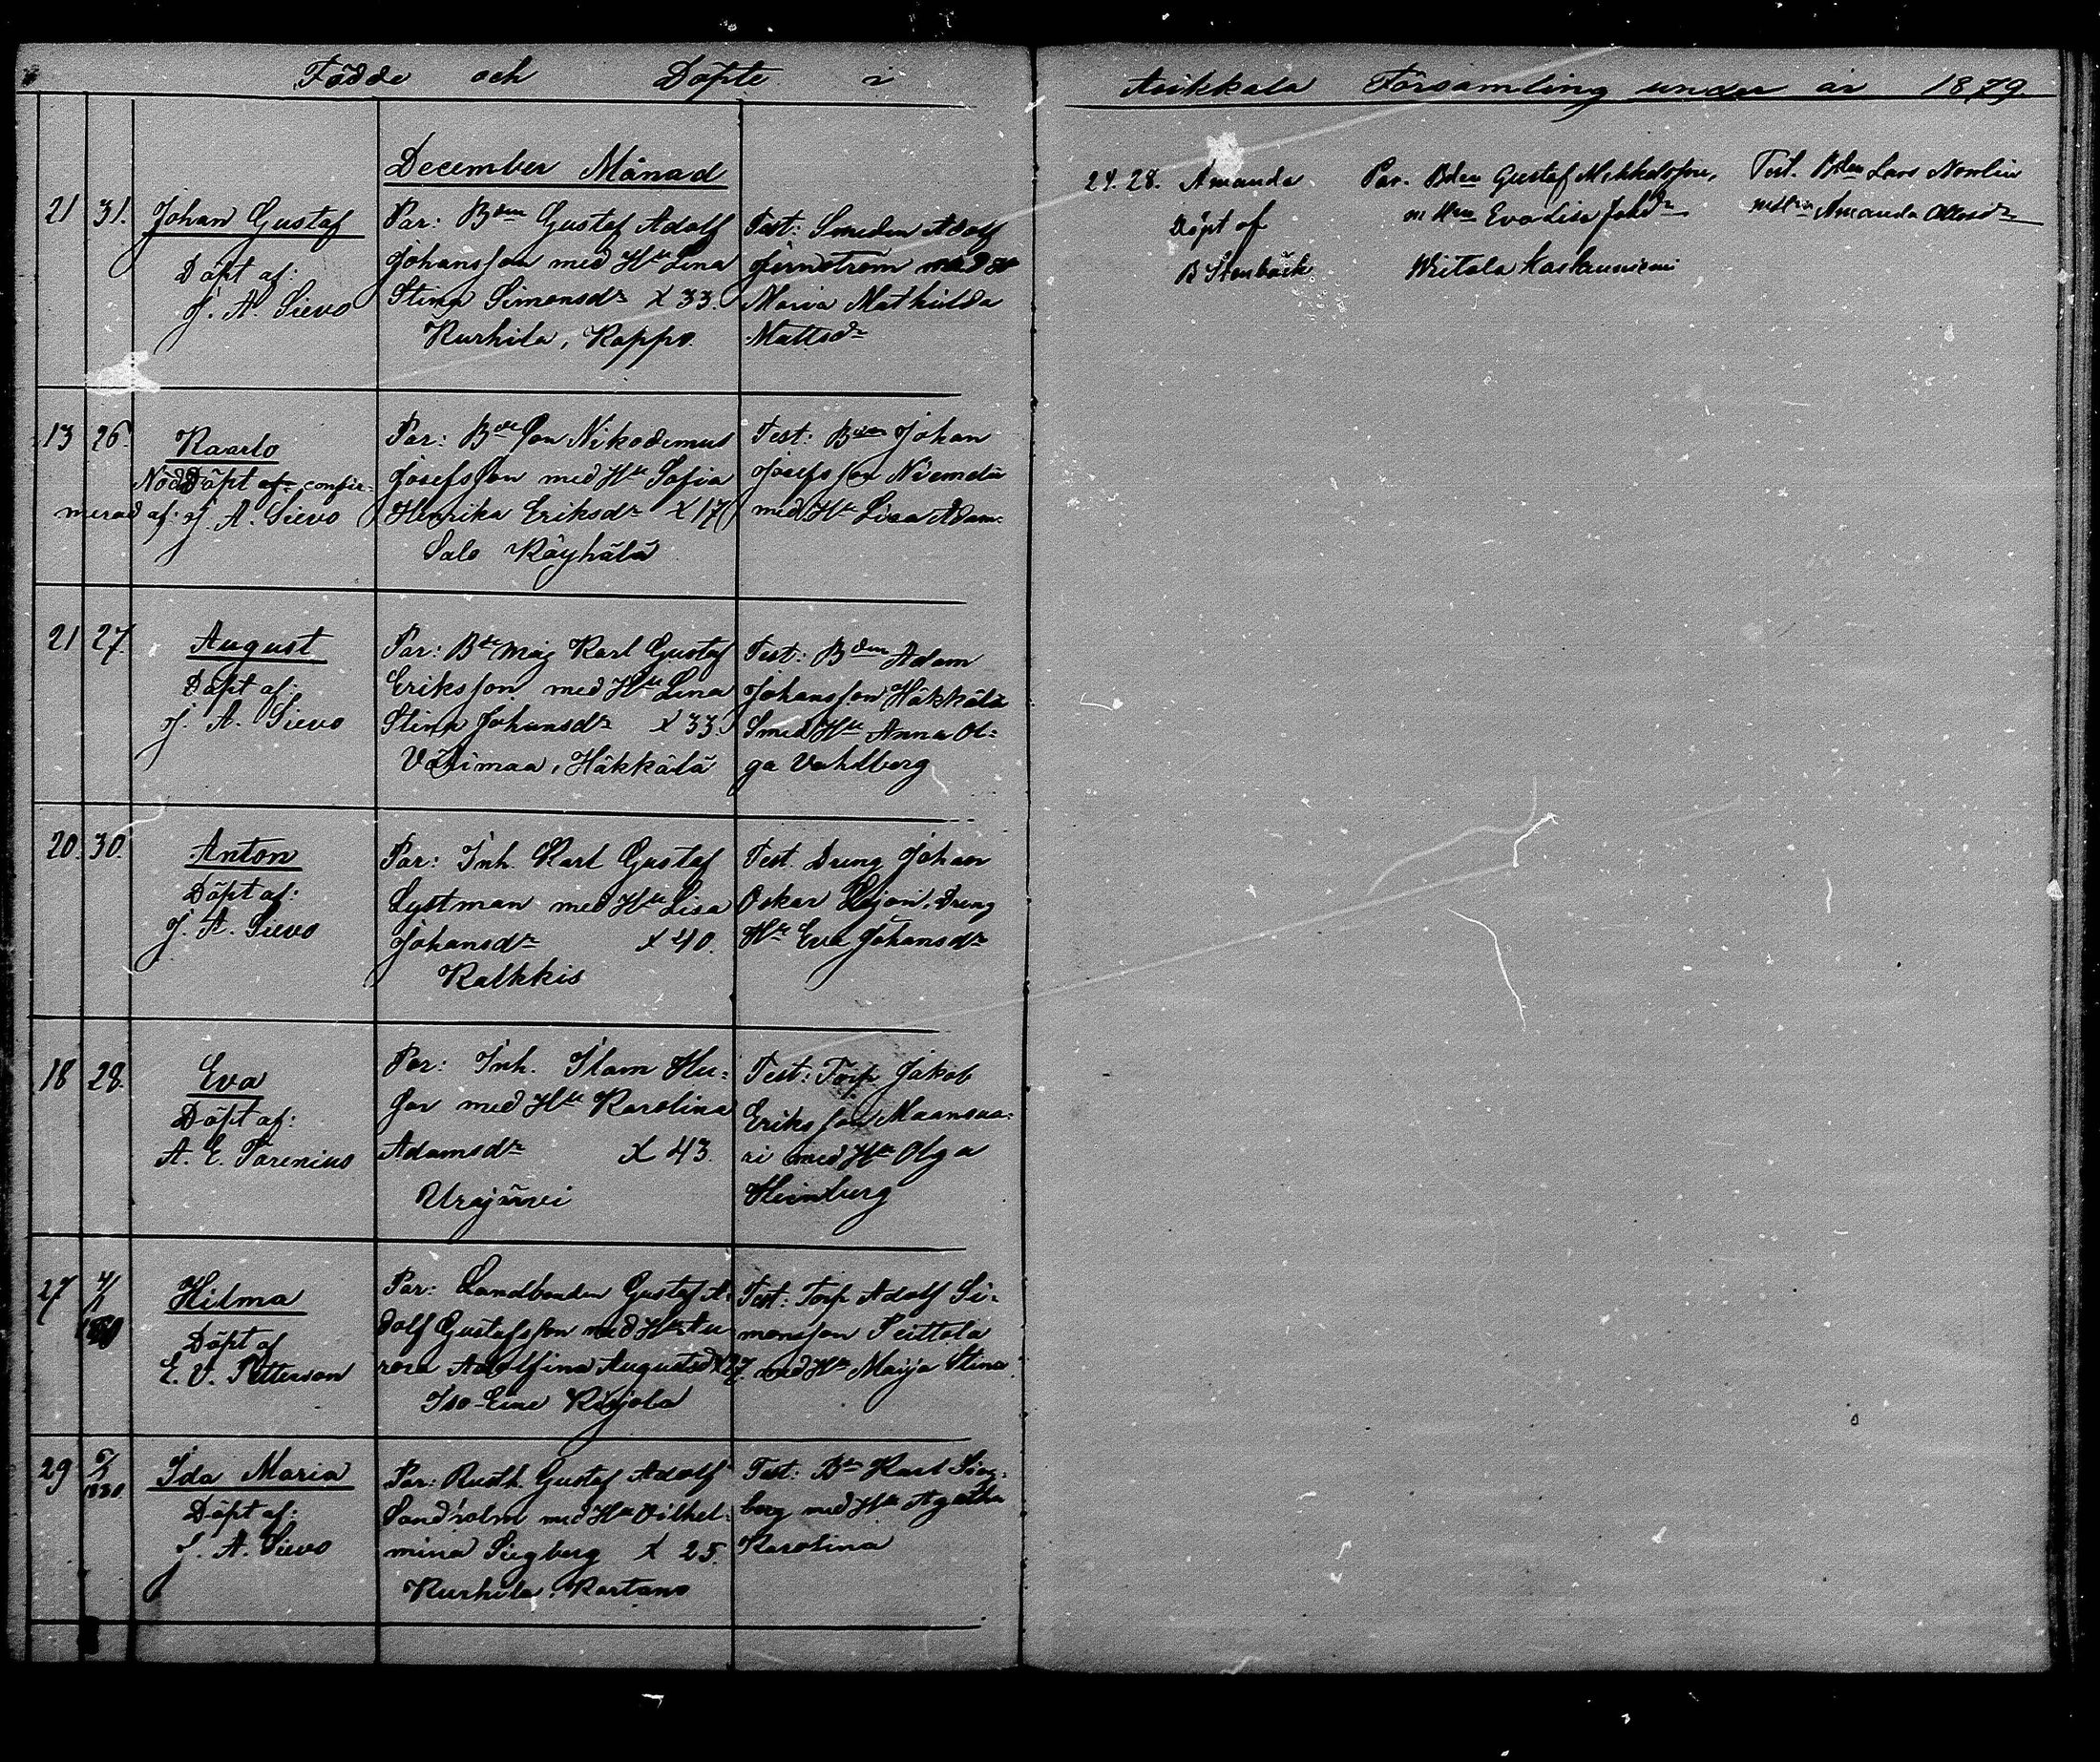 Födde och Döpte i Asikkala Församling under år 1879.
December Månad
21 31. Johan Gustaf
Döpt af:
J. A. Sievo
Par: Bden Gustaf Adolf
Johansson med Hu Lina
Stina Simonsdr X 33.
Kurhila, Rappo.
Test: Smeden Adolf
Jernström med H
Maria Mathilda
Mattsdr
13 26. Kaarlo
Nöddöpt af: confir-
merad af: J. A. Sievo
Par: Bde Son Nikodemus
Josefsson med Hu Sofia
Henrika Eriksdr X 17
Salo Köyhälä
Test: Bden Johan
Josefsson Niemelä
med Hu Lisa Adam-
21 27. August
Döpt af:
J. A. Sievo
Par: Bde Måg Karl Gustaf
Eriksson med Hu Lina
Stina Johansdr X 33.
Vähimaa, Häkkälä
Test: Bden Adam
Johansson Häkkälä
Smed Hu Anna Ol-
ga Vahlberg
20. 30. Anton
Döpt af:
J. A. Sievo
Par: Inh. Karl Gustaf
Lystman med Hu Lisa
Johansdr X 40.
Kalkkis
Test. Dreng Johan
Oskar Lejon, Dreng
Hu Eva Johansdr
18 28. Eva
Döpt af:
A. E. Parenius
Par: Inh. Adam Hu-
med Hu Karolina
Adamsdr X 43.
Urajärvi
Test: Torp Jakob
Eriksson Maansaa-
ri med Hu Olga
Heimburg
27 4/1 Hilma
Döpt af
E. V. Petterson
Par: Landbonden Gustaf A-
dolf Gustafsson med Hu Au-
rora Adolfina Augustsdr X 27.
Iso-Eine Kirjola
Test: Torp Adolf Si-
monsson Seittola
med Hu Maija Stina
29 6/1 1880. Ida Maria
Döpt af:
J. A. Sievo
Par: Rusth. Gustaf Adolf
Sandholm med Hu Vilhel-
mina Siegberg X 25.
Kurhila, Kartano
Test: Bde Karl Sieg-
berg med Hu Agatha
Karolina
24. 28. Amanda
Döpt af
B Stenbäck
Par. Bden Gustaf Mikkelsson,
m Hun Evalisa Johdr
Writala Kaskenniemi
Test. Bden Lars Nordlin
m Hun Amanda Ottosdr